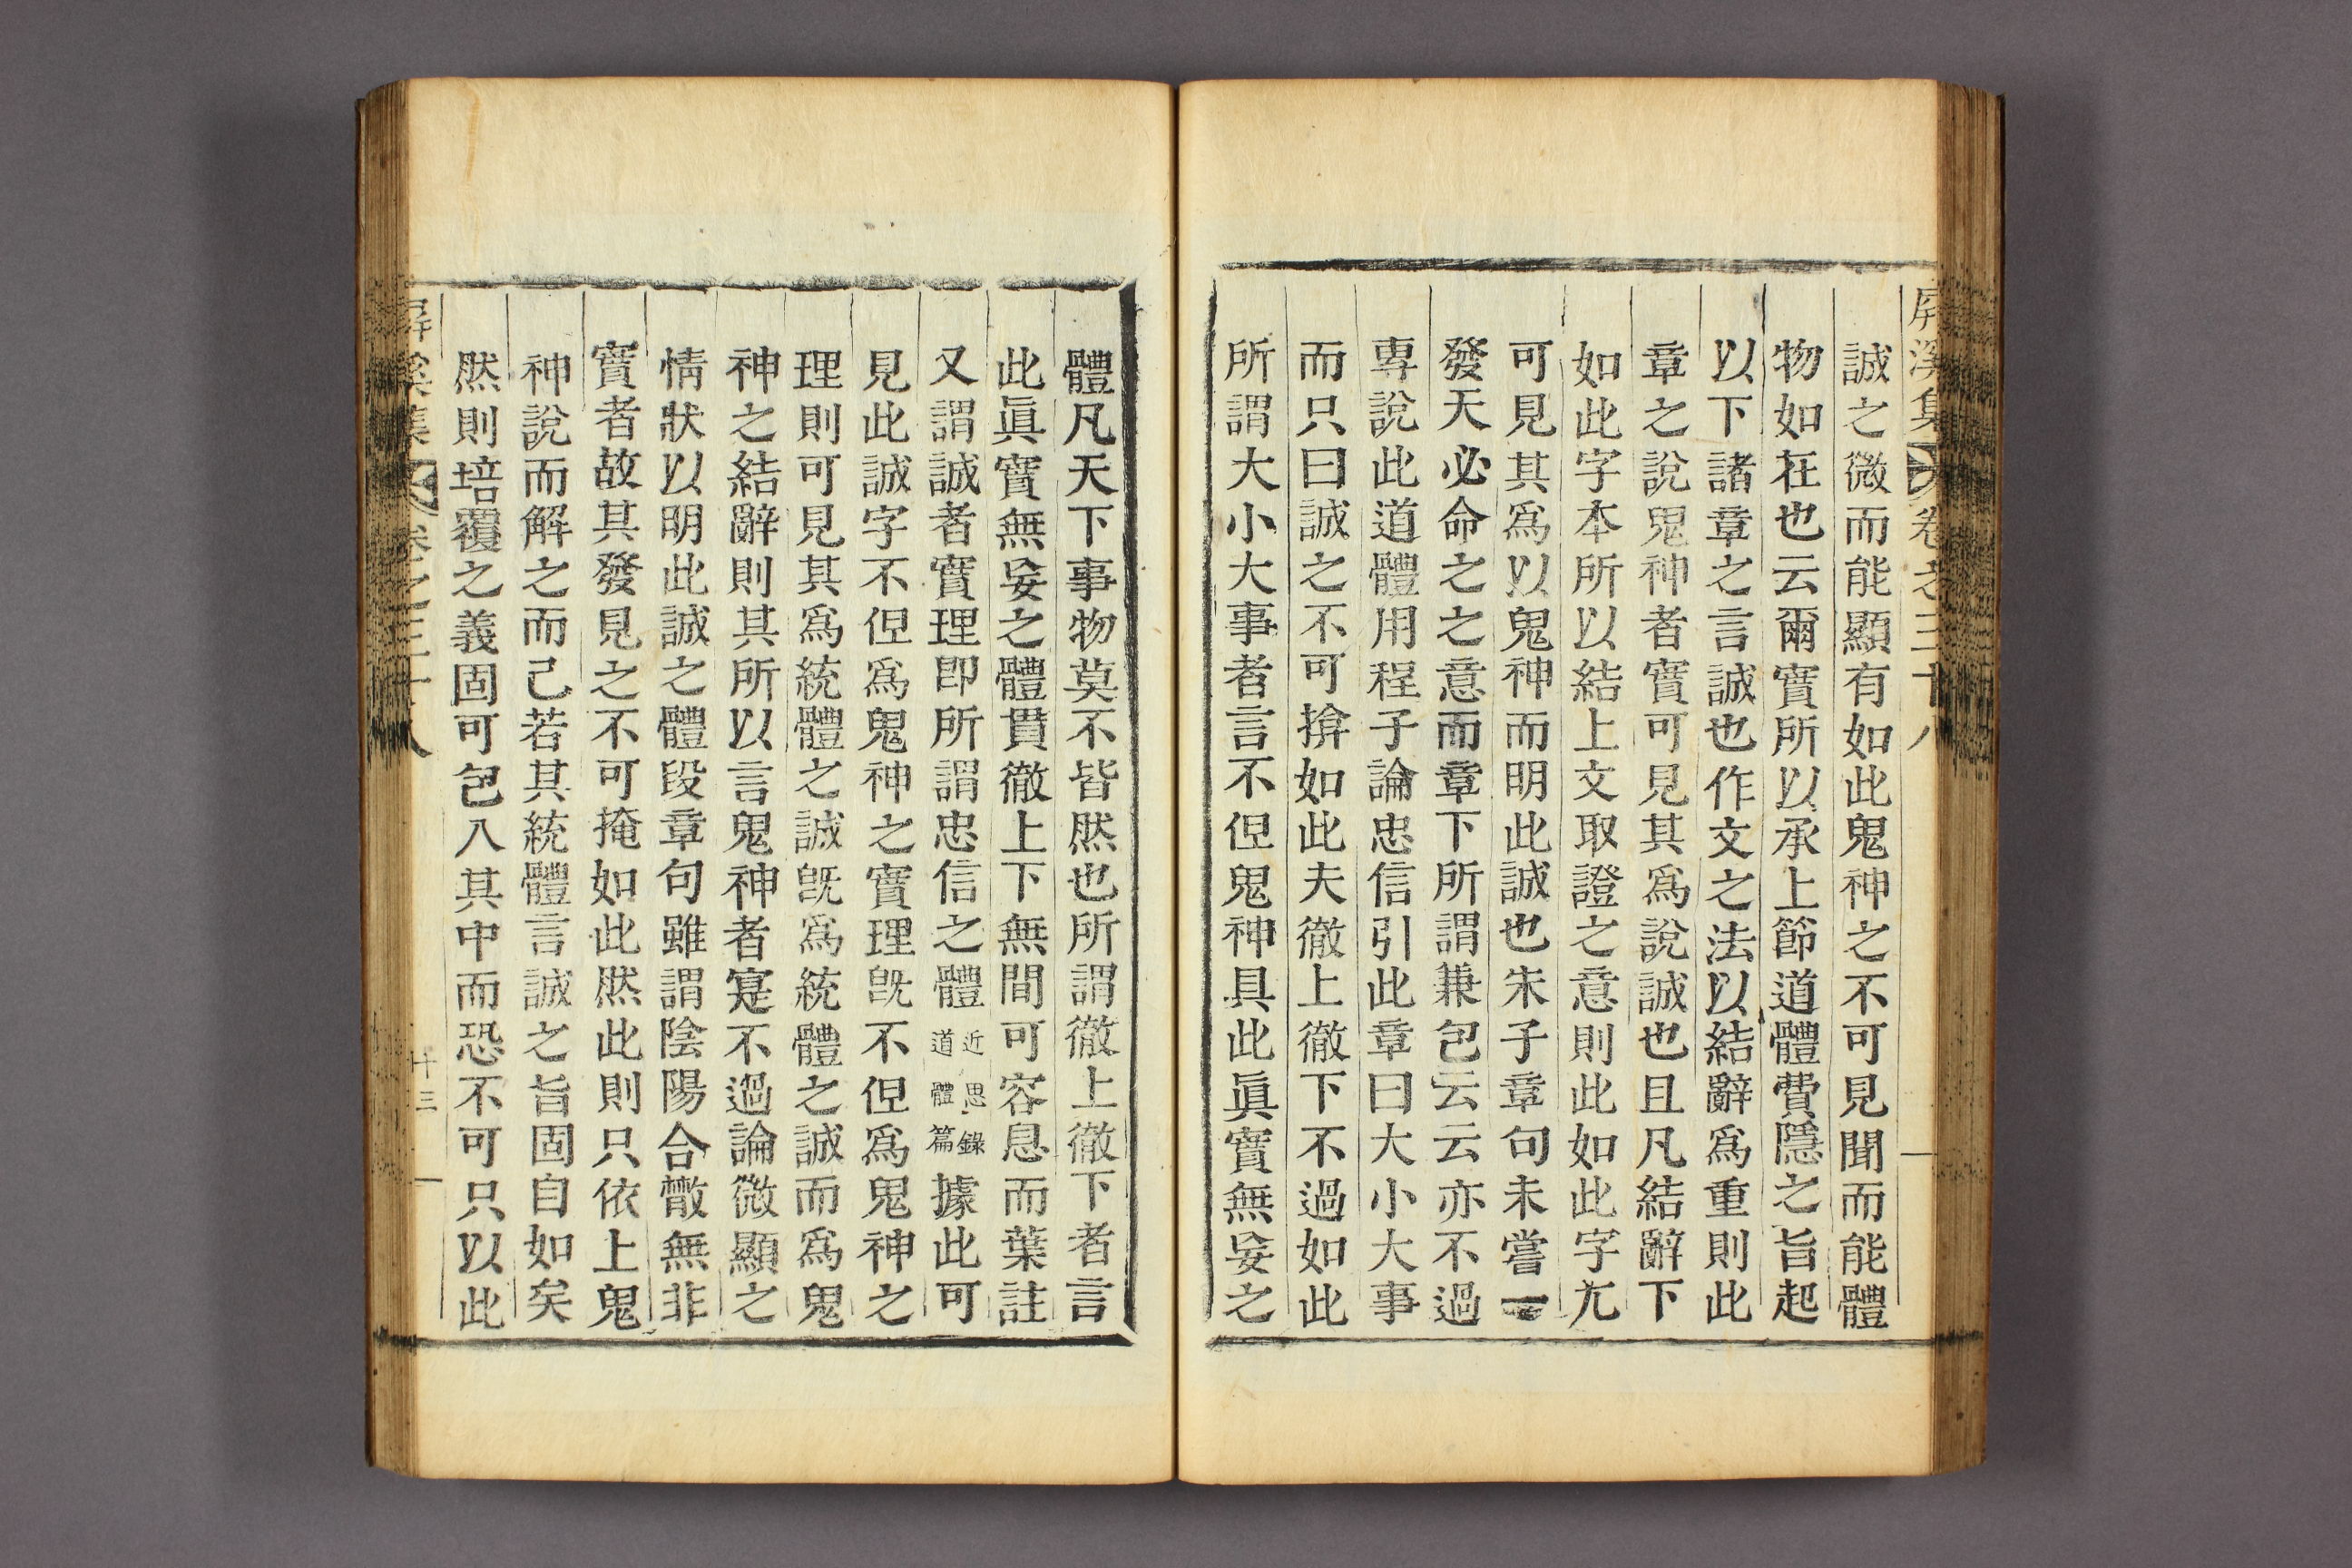 屛溪集 卷之三十八
誠之微而能顯有如此鬼神之不可見聞而能體
物如在也云爾實所以承上節道體費隱之旨起
以下諸章之言誠也作文之法以結辭爲重則此
章之說鬼神者實可見其爲說誠也且凡結辭下
如此字本所以結上文取證之意則此如此字尤
可見其爲以鬼神而明此誠也朱子章句未嘗一
發天必命之之意而章下所謂兼包云云亦不過
專說此道體用程子論忠信引此章曰大小大事
而只曰誠之不可揜如此夫徹上徹下不過如此
所謂大小大事者言不但鬼神具此眞實無妄之
體凡天下事物莫不皆然也所謂徹上徹下者言
此眞實無妄之體貫徹上下無間可容息而葉註
又謂誠者實理卽所謂忠信之體近思錄道體篇據此可
見此誠字不但爲鬼神之實理旣不但爲鬼神之
理則可見其爲統體之誠旣爲統體之誠而爲鬼
神之結辭則其所以言鬼神者寔不過論微顯之
情狀以明此誠之體段章句雖謂陰陽合散無非
實者故其發見之不可掩如此然此則只依上鬼
神說而解之而已若其統體言誠之旨固自如矣
然則培覆之義固可包入其中而恐不可只以此
屛溪集 卷之三十八 十三